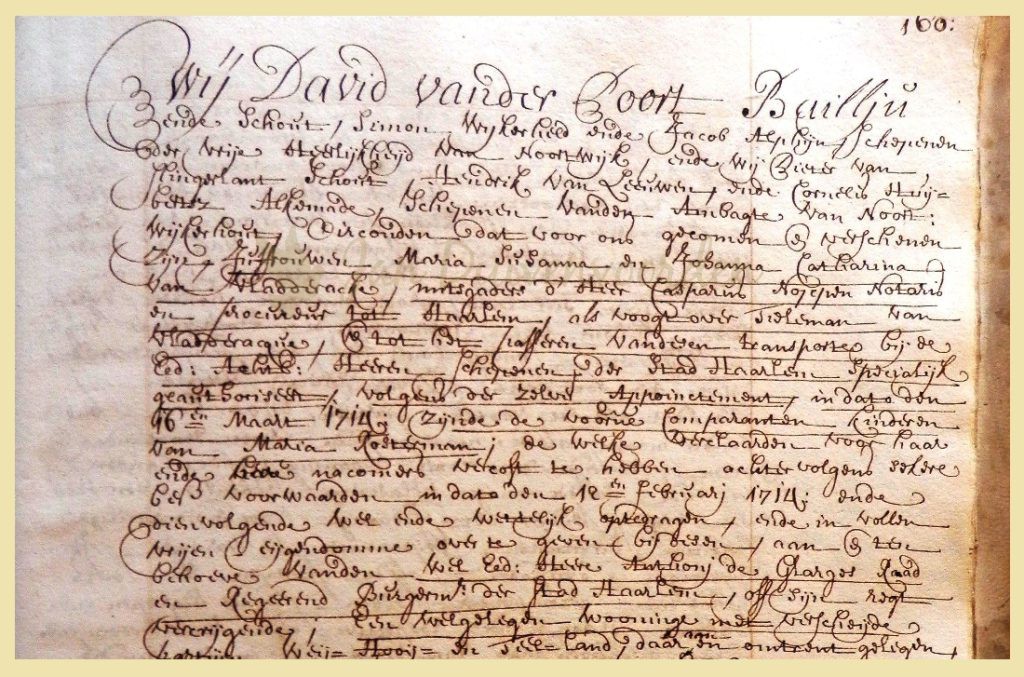 160:
Wij David vander Poort Bailliu
ende Schout, Simon Wijkerheld ende Jacob Alphijn, Schepenen
der vrije Heerlijkheijd van Noortwijk, ende Wij Pieter van
Slingerlant Schout, Hendrik van Leeuwen, ende Cornelis Huij=
bertsz Alkemade, Schepenen vanden Ambagte van Noort:
wijkerhout, Oirconden dat voor ons gecomen & verschenen
zijn, Juffrouwen Maria Susanna en Johanna Catharina
van Vladderacke, mitsgaders d'Heer Casparus Noppen Notaris
en procureur tot Haarlem, als voogt over Tieleman van
Vladderaque, & tot het passeren vandesen transporte bij de
Ed: Achtb: Heeren Schepenen der Stad Haarlem specialijk
geauthoriseert, volgens der zelver Appoinctement, in dato den
16en Maart 1714; zijnde de voorne Comparanten kinderen
van Maria Koeterman; de welke verclaarden voor haar
ende nacomers vercoft te hebben achtervolgens sekere
voorwaarden in dato den 12en februarij 1714; ende
dienvolgende wel ende wettelijk optedragen, ende in vollen
vrijen eijgendomme over te geven bij desen, aan & ten
behoeve vanden Wel Ed: Heere Anthonij de Glarges Raad
en Regeerend Burgermr der Stad Haarlem, off sijn regt
vercrijgende, Een welgelegen wooninge met verscheijde
partijen Weij= Hooij= en Teel=land, daar aan en omtrent gelegen,